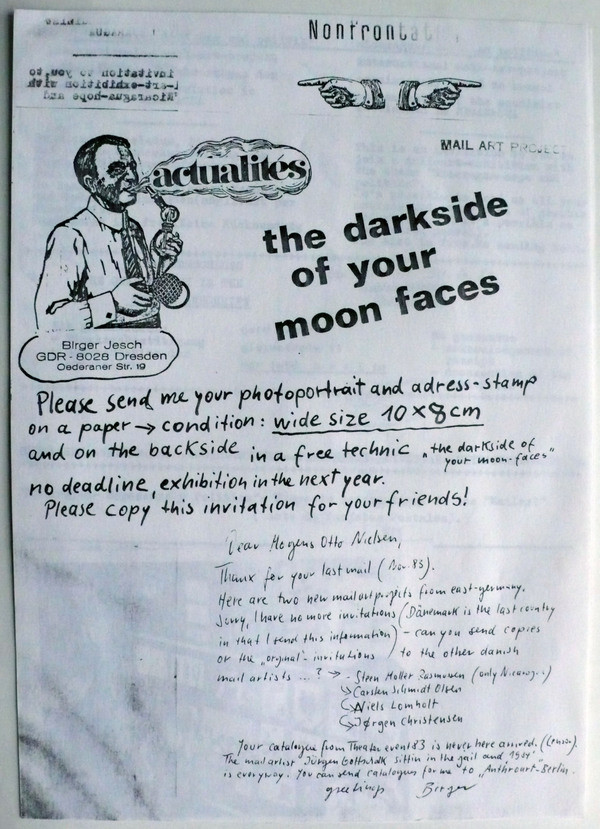 Nonfrontati
invitation to you, to
l-art-exhibition with
"Nicaragua-hope and
MAIL ART PROJECT
actualités
the darkside
of your
moon faces
Birger Jesch
GDR - 8028 Dresden
Oederaner Str. 19
Please send me your photoportrait and adress-stamp
on a paper → condition: wide size 10×8cm
and on the backside in a free technic „the darkside of
your moon-faces"
no deadline, exhibition in the next year.
Please copy this invitation for your friends!
Dear Mogens Otto Nielsen,
Thanx for your last mail (Nov. 83).
Here are two new mailartprojects from east-germany.
Sorry, I have no more invitations (Dänemark is the last country
in that I send this information) - can you send copies
or the „orginal"-invitations to the other danish
mail artists ...? → - Steen Møller Rasmussen (only Nicaragua)
Carsten Schmidt Olsen
Niels Lomholt
Jørgen Christensen
Your catalogue from Theater event 83 is never here arrived. (Censor).
The mailartist Jürgen Gottschalk sittin in the jail and „1984"
is everyway. You can send catalogues for me to „Anthroart-Berlin.
greetings Birger